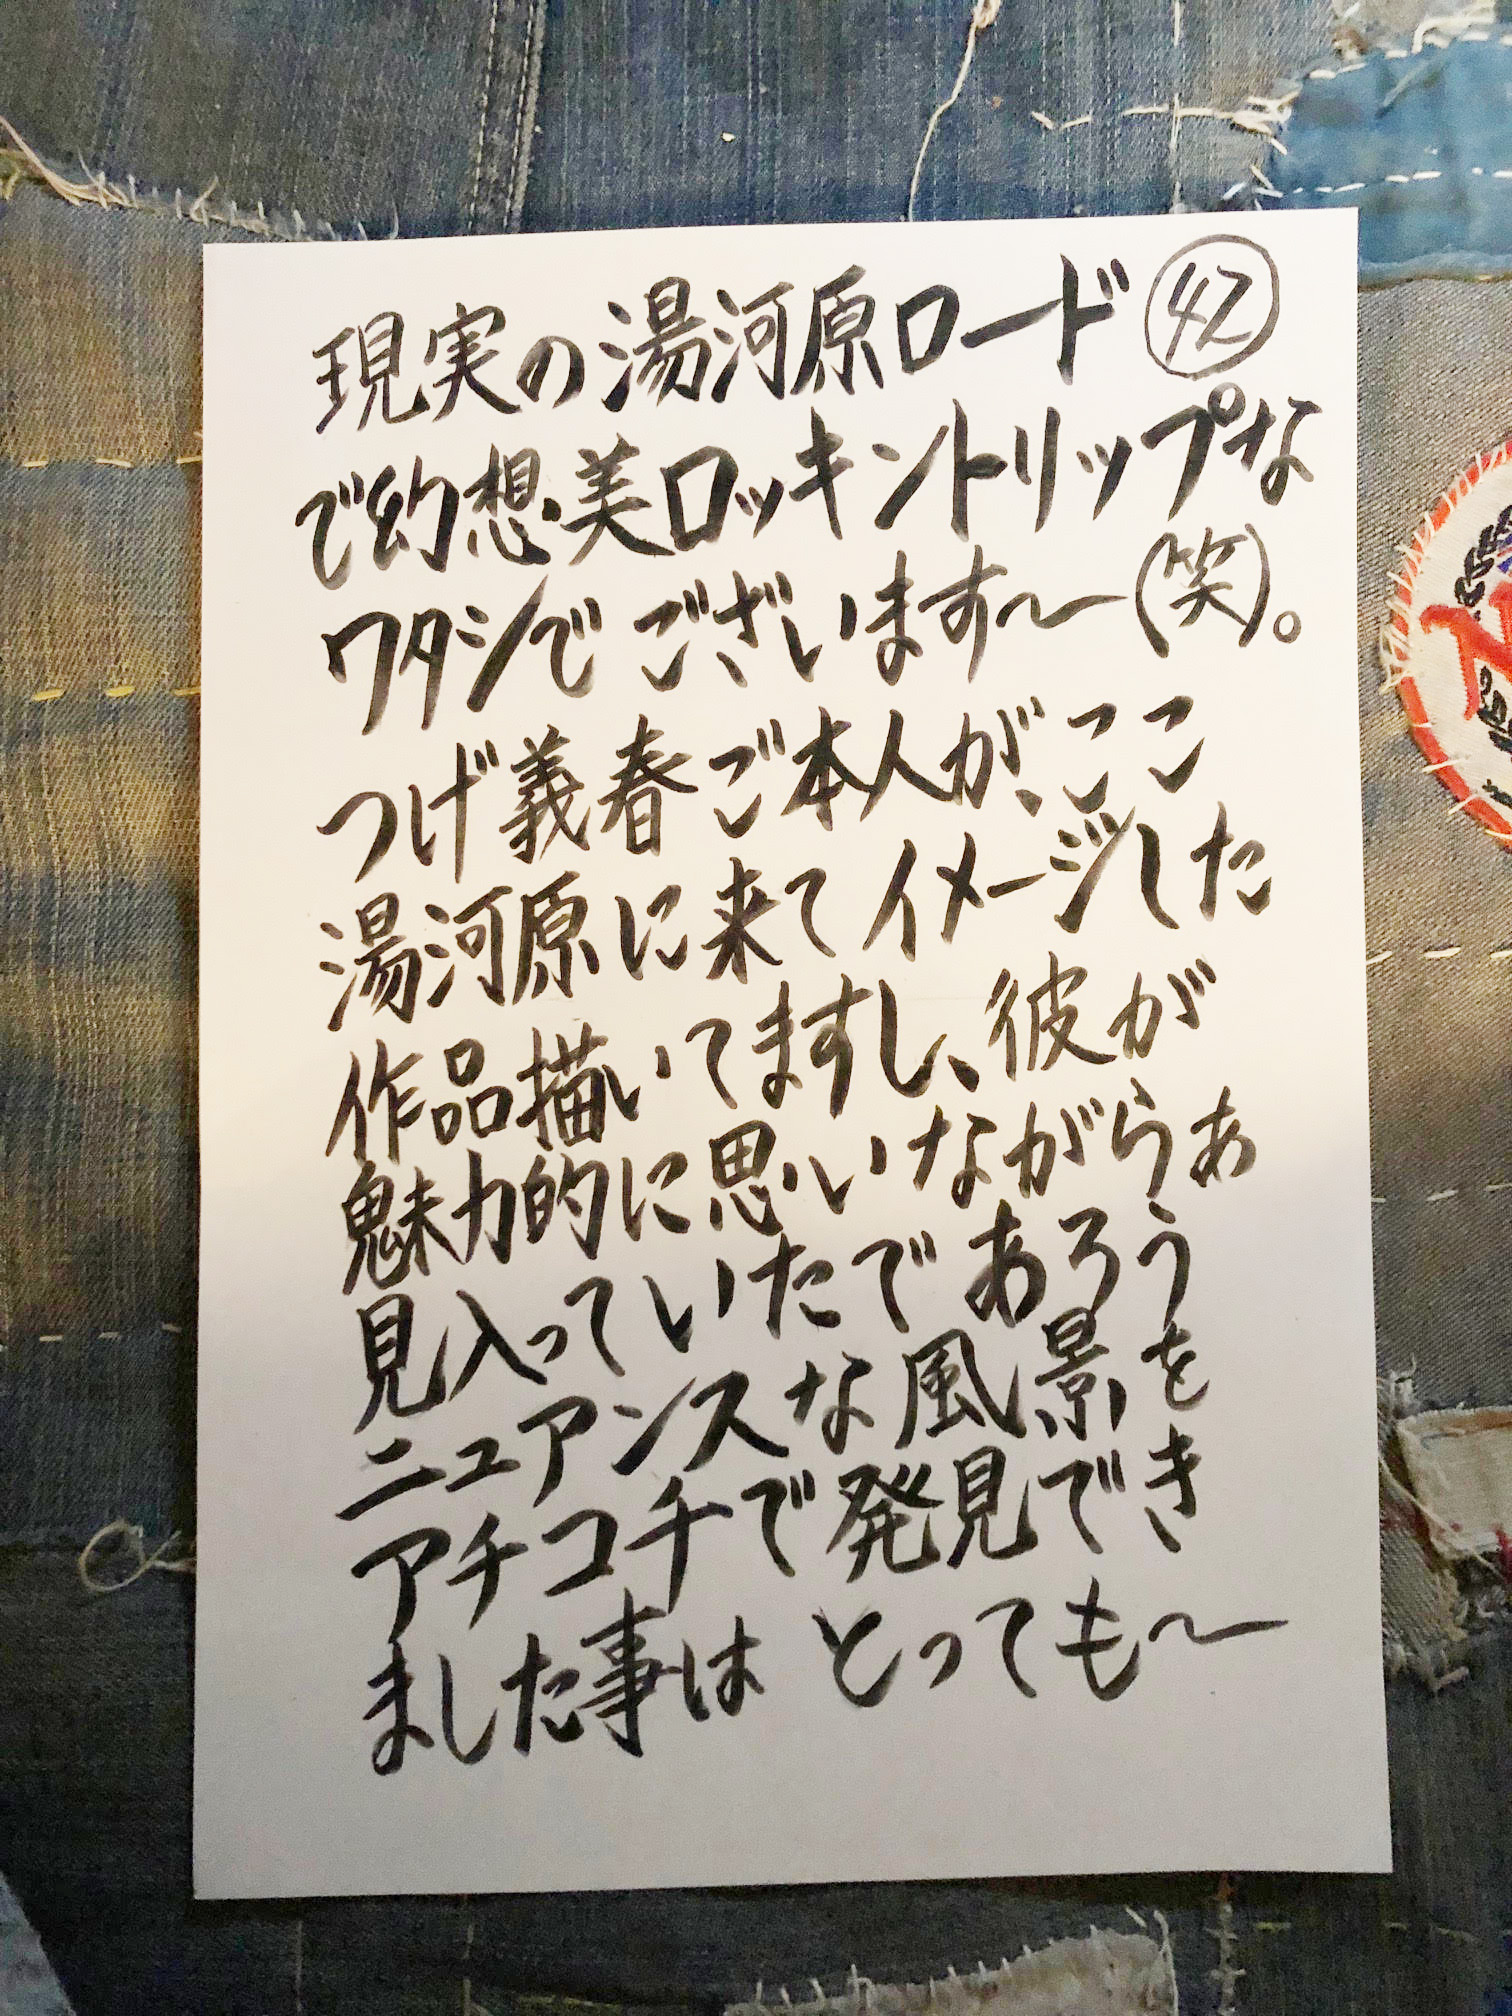 現実の湯河原ロード ㊷
で幻想・美ロッキントリップな
ワタシでございます〜(笑)。
つげ義春ご本人が、ここ
湯河原に来てイメージした
作品描いてますし、彼が
魅力的に思いながらぁ
見入っていたであろう
ニュアンスな風景を
アチコチで発見でき
ました事はとっても〜